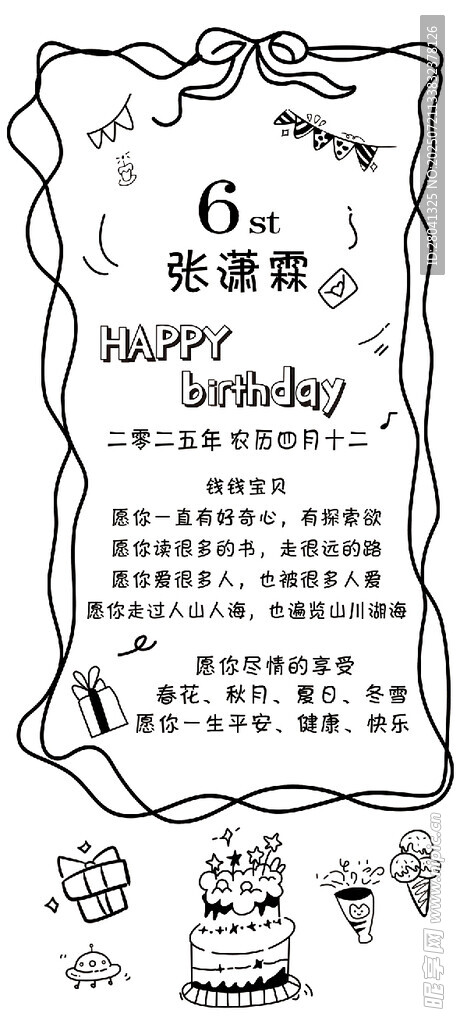 6 st
张潇霖
HAPPY
birthday
二零二五年 农历四月十二
钱钱宝贝
愿你一直有好奇心，有探索欲
愿你读很多的书，走很远的路
愿你爱很多人，也被很多人爱
愿你走过人山人海，也遍览山川湖海
愿你尽情的享受
春花、秋月、夏日、冬雪
愿你一生平安、健康、快乐
ID:28041325 NO:20250721133832378126
昵享网 www.nipic.cn